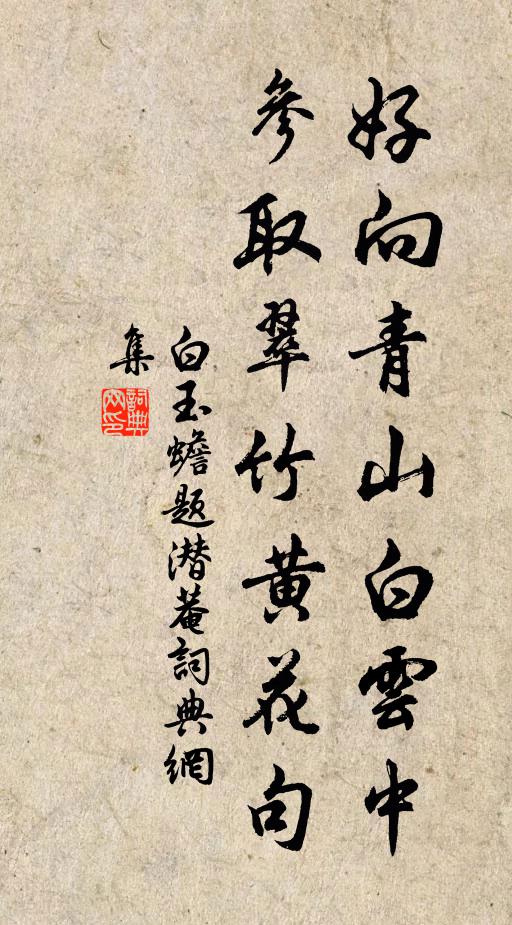 好向青山白雲中
參取翠竹黄花句
白玉蟾题潜菴詞典網
集
詞典網印